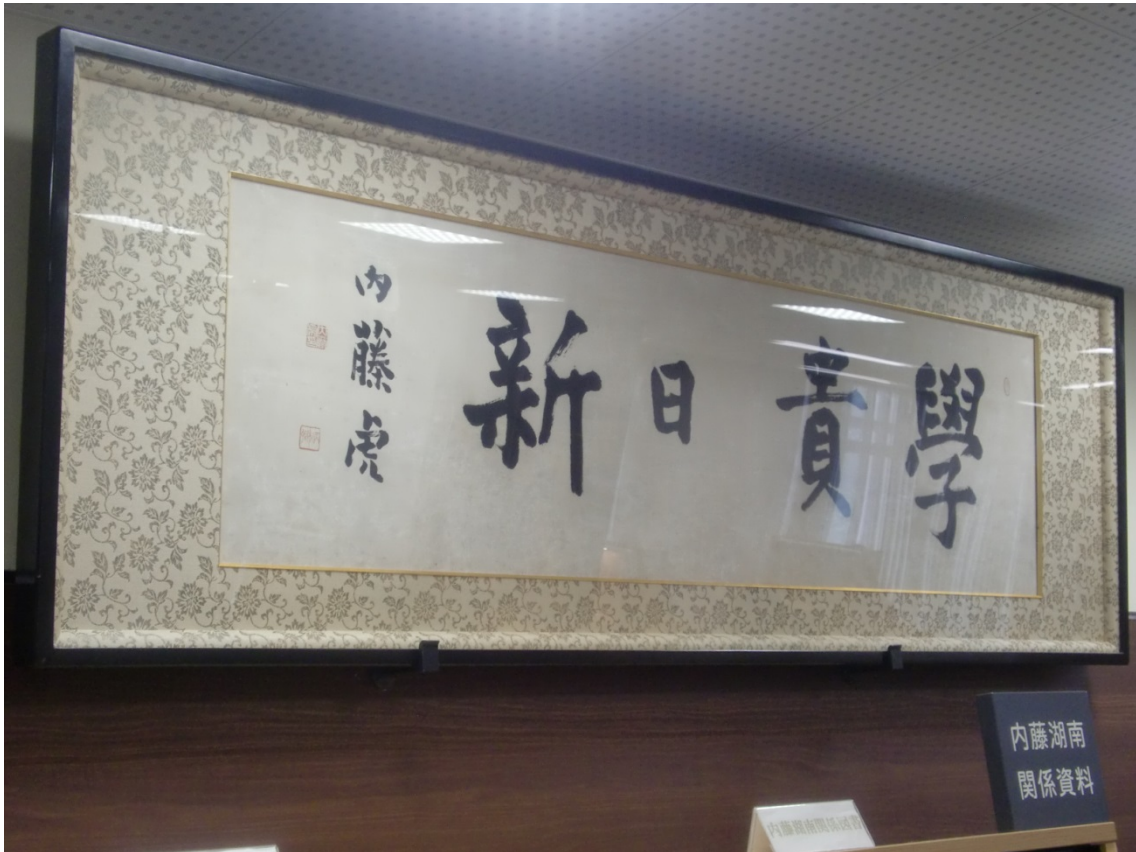 學貴日新
内藤虎
内藤湖南
関係資料
内藤湖南関係図書